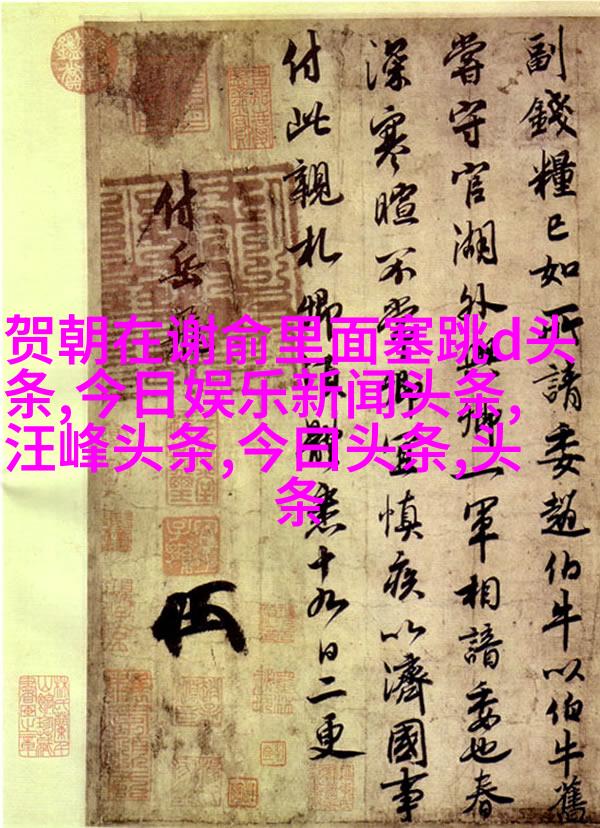 贺朝在谢俞里面塞跳d头
条,今日娱乐新闻头条,
汪峰头条,今日头条,头
条
副錢糧已如所請委趙伯牛以伯牛舊
嘗守官湖外與卿一軍相諳委也春
深寒暄不常卿宜慎疾以濟國事
付此親札卿須體悉十九日二更
付岳